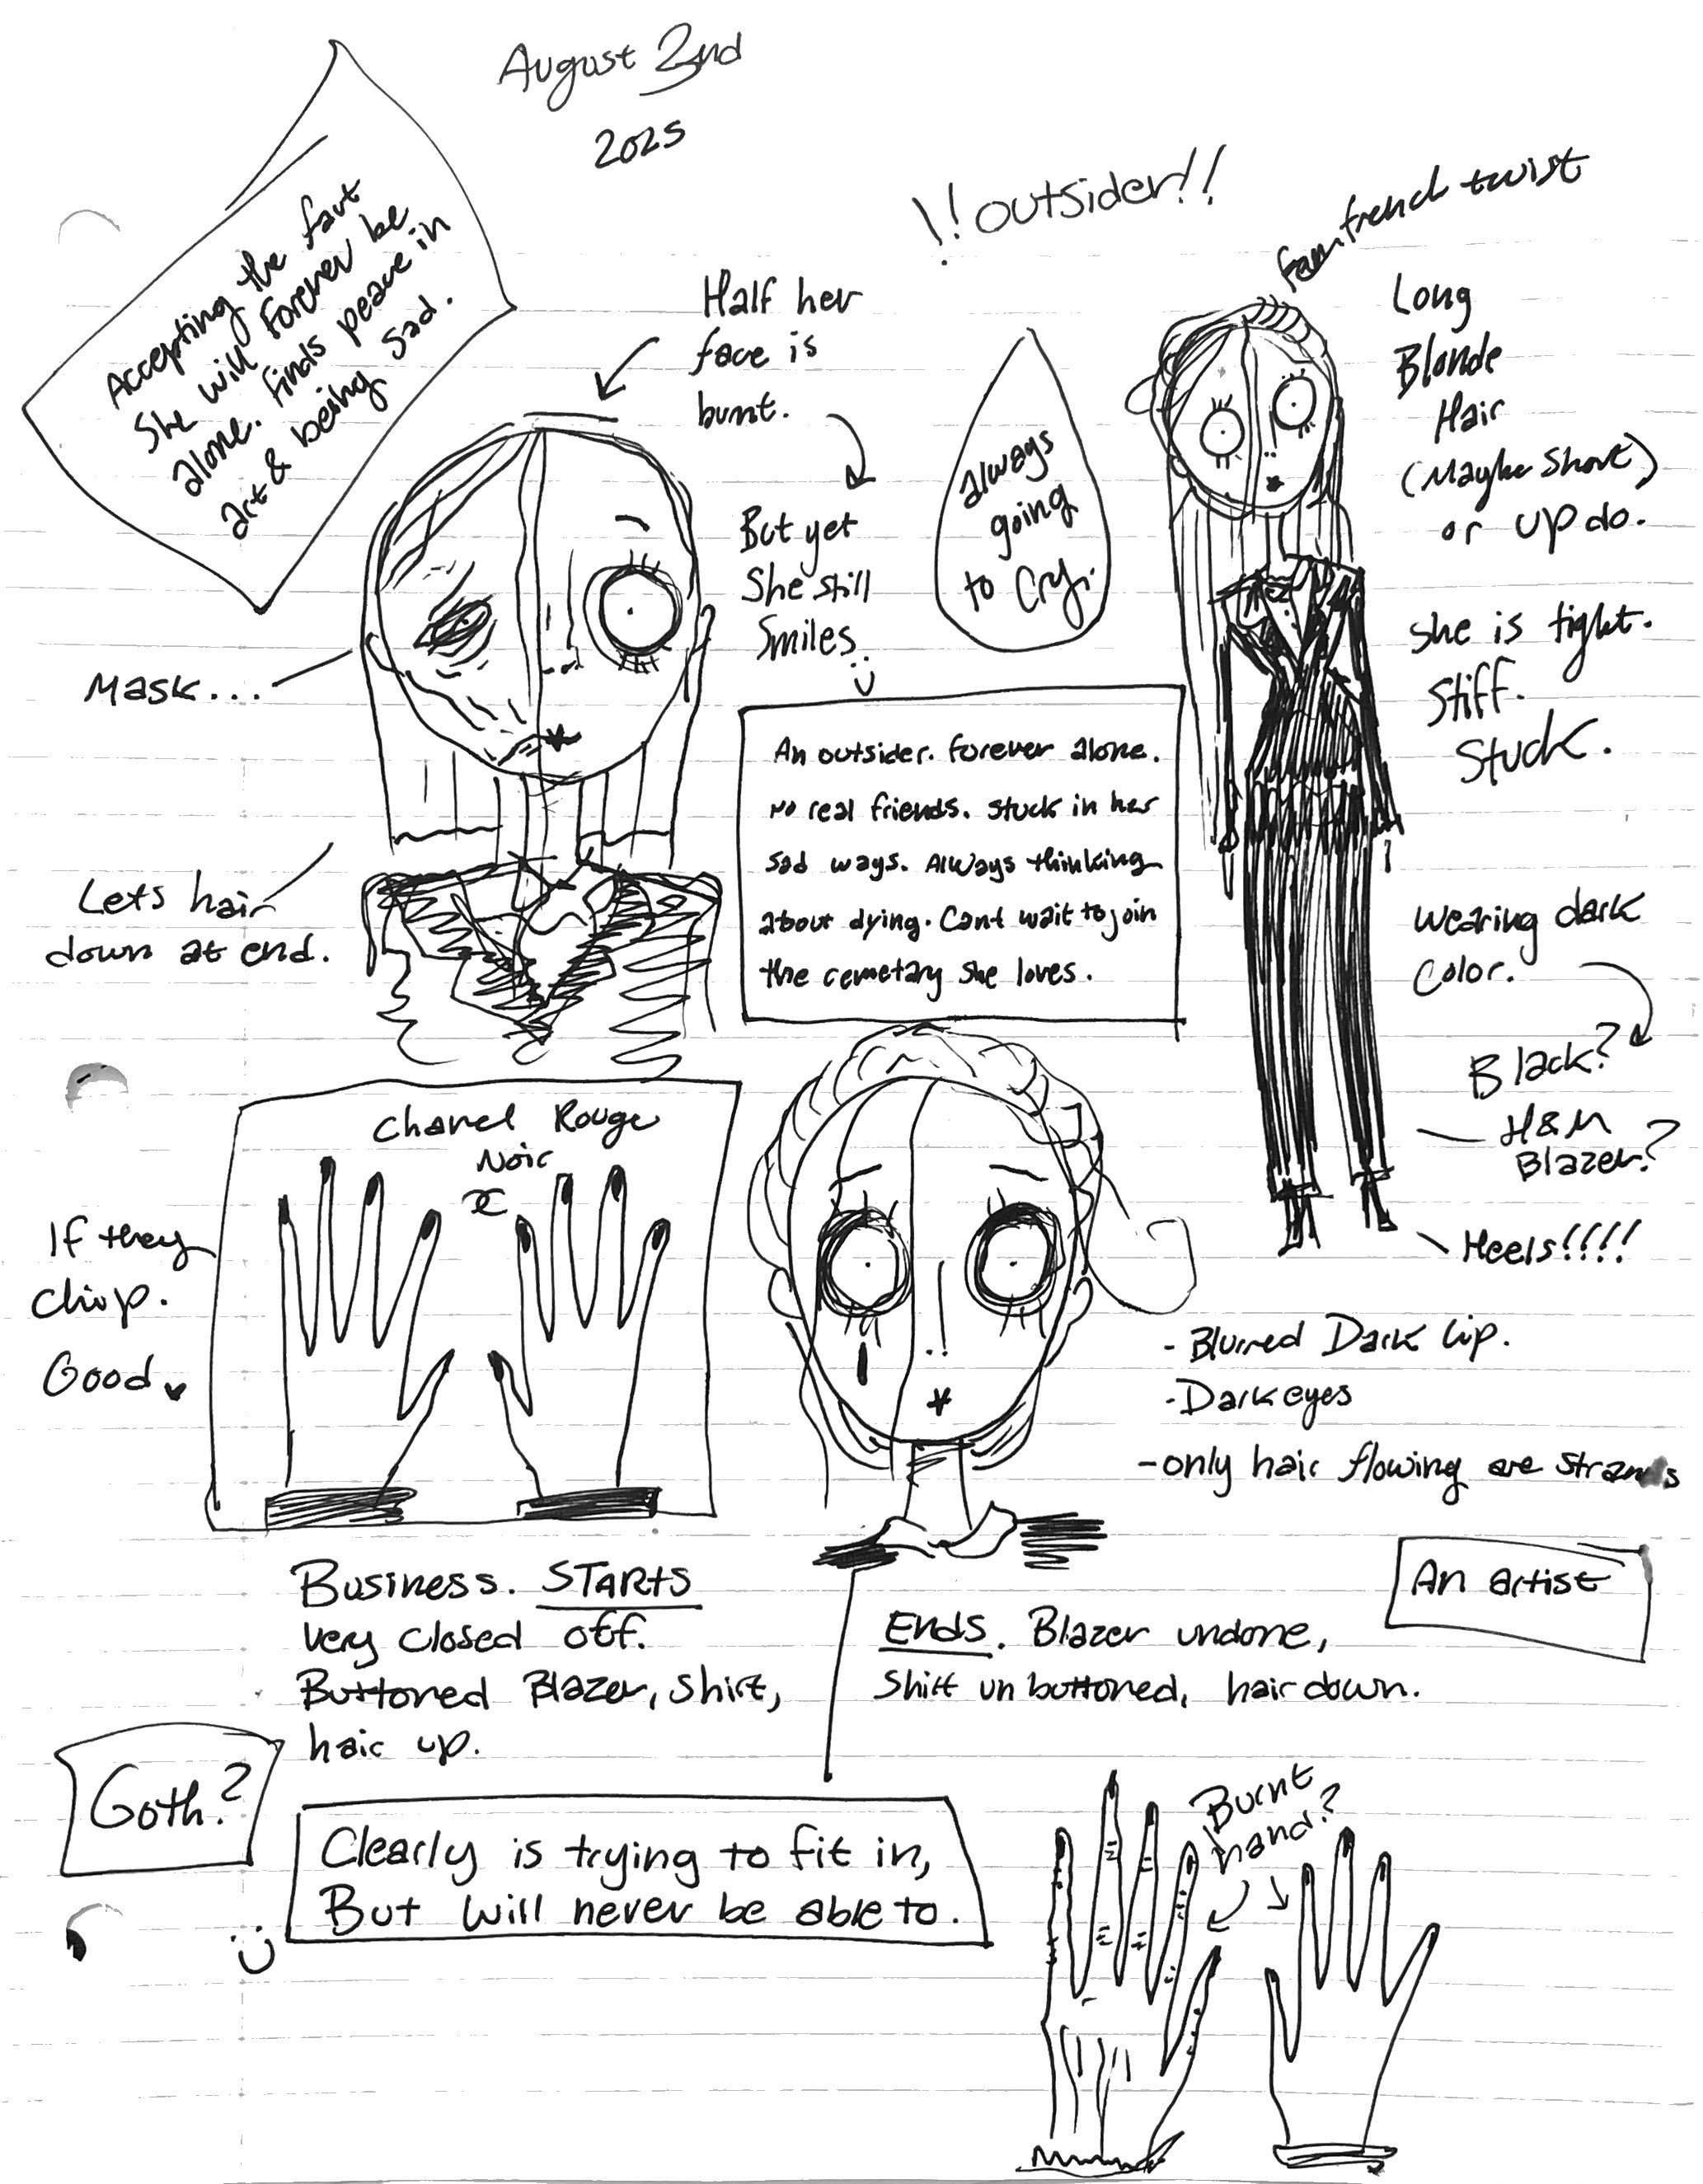 August 2nd
2025
!!outsider!!
french twist
Accepting the fact
she will forever be
alone. finds peace in
art & being sad.
Half her
face is
burnt.
But yet
She still
Smiles
:)
always
going
to cry.
Long
Blonde
Hair
(Maybe Short)
or updo.
she is tight.
Stiff.
Stuck.
Mask...
An outsider. forever alone.
No real friends. Stuck in her
sad ways. Always thinking
about dying. Cant wait to join
the cemetary she loves.
Lets hair
down at end.
wearing dark
color.
Black?
H&M
Blazer?
Heels!!!!
Chanel Rouge
Noir
If they
chip.
Good
- Blurred Dark Lip.
- Dark eyes
- only hair flowing are strands
Business. STARTS
very closed off.
Buttoned Blazer, shirt,
hair up.
ENDS. Blazer undone,
Shirt un buttoned, hair down.
An artist
Goth?
Clearly is trying to fit in,
But will never be able to.
:)
Burnt
hand?